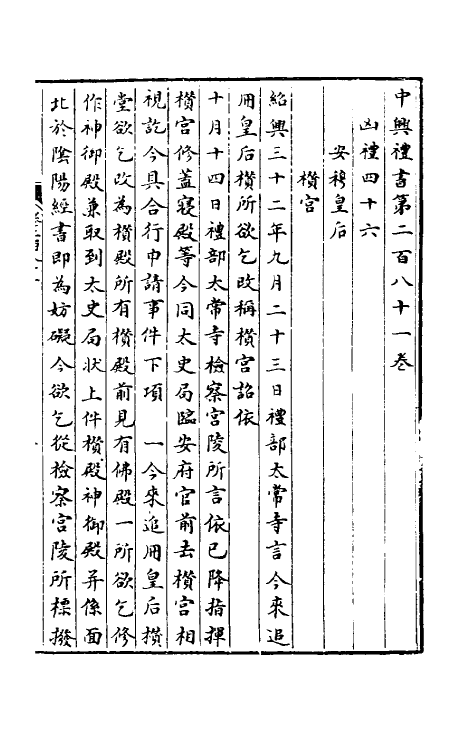 中興禮書第二百八十一卷
凶禮四十六
安穆皇后
欑宮
紹興三十二年九月二十三日禮部太常寺言今來追
冊皇后欑所欲乞改稱欑宮詔依
十月十四日禮部太常寺檢察宮陵所言依已降指揮
欑宮修蓋寝殿等今同太史局臨安府官前去欑宮相
視訖今具合行申請事件下項　一今來追冊皇后欑
堂欲乞改為欑殿所有欑殿前見有佛殿一所欲乞修
作神御殿兼取到太史局狀上件欑殿神御殿并係面
北於陰陽經書即為妨礙今欲乞從檢察宮陵所標撥